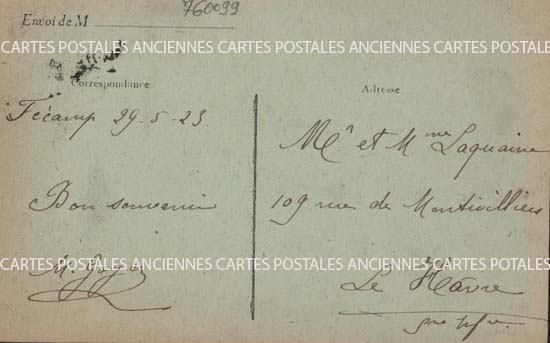 760099
Envoi de M
CARTES POSTALES ANCIENNES CARTES POSTALES ANCIENNES CARTES POSTALES ANCIENNES
Correspondance
Adresse
Fécamp 29-5-23
Mr et Mme Laquaine
Bon souvenir
109 rue de Montivilliers
M.
CARTES POSTALES ANCIENNES CARTES POSTALES ANCIENNES CARTES POTALES
Le Hâvre